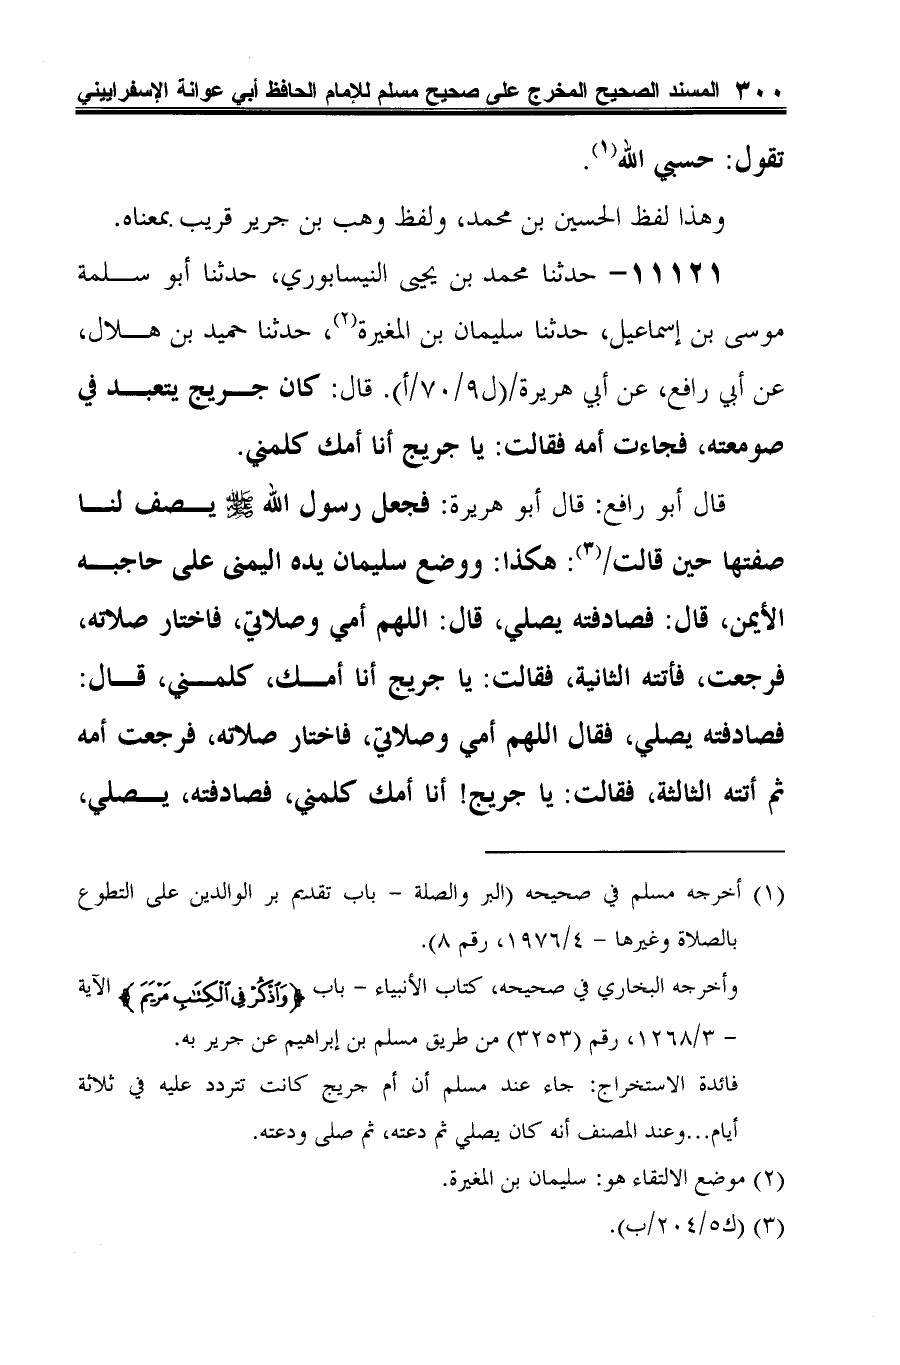 ٣٠٠ المسند الصحيح المخرج على صحيح مسلم للإمام الحافظ أبي عوانة الإسفراييني
تقول: حسبي الله(١).
وهذا لفظ الحسين بن محمد، ولفظ وهب بن جرير قريب بمعناه.
١١١٢١- حدثنا محمد بن يحيى النيسابوري، حدثنا أبو سلمة
موسى بن إسماعيل، حدثنا سليمان بن المغيرة(٢)، حدثنا حميد بن هلال،
عن أبي رافع، عن أبي هريرة/(ل٧٠/٩/أ). قال: كان جريج يتعبد في
صومعته، فجاءت أمه فقالت: يا جريج أنا أمك كلمني.
قال أبو رافع: قال أبو هريرة: فجعل رسول الله ﷺ يصف لنا
صفتها حين قالت/(٣): هكذا: ووضع سليمان يده اليمنى على حاجبه
الأيمن، قال: فصادفته يصلي، قال: اللهم أمي وصلاتي، فاختار صلاته،
فرجعت، فأتته الثانية، فقالت: يا جريج أنا أمك، كلمني، قال:
فصادفته يصلي، فقال اللهم أمي وصلاتي، فاختار صلاته، فرجعت أمه
ثم أتته الثالثة، فقالت: يا جريج! أنا أمك كلمني، فصادفته، يصلي،
(١) أخرجه مسلم في صحيحه (البر والصلة - باب تقديم بر الوالدين على التطوع
بالصلاة وغيرها - ١٩٧٦/٤، رقم ٨).
وأخرجه البخاري في صحيحه، كتاب الأنبياء - باب ﴿وَٱذْكُرْ فِى ٱلْكِتَٰبِ مَرْيَمَ﴾ الآية
- ١٢٦٨/٣، رقم (٣٢٥٣) من طريق مسلم بن إبراهيم عن جرير به.
فائدة الاستخراج: جاء عند مسلم أن أم جريج كانت تتردد عليه في ثلاثة
أيام...وعند المصنف أنه كان يصلي ثم دعته، ثم صلى ودعته.
(٢) موضع الالتقاء هو: سليمان بن المغيرة.
(٣) (ك٢٠٤/٥/ب).